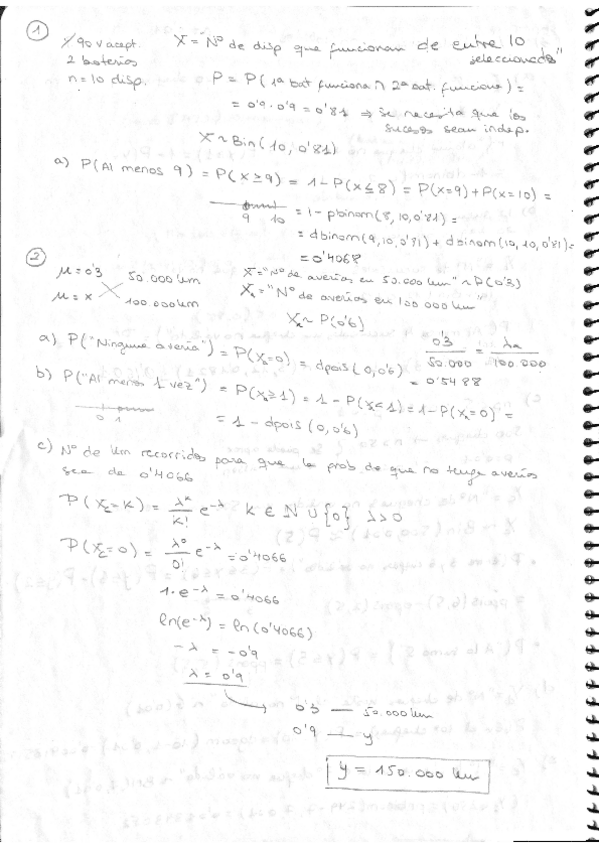 ①
% 90 v acept.
2 baterías
n = 10 disp.
X = Nº de disp que funcionan de entre 10 seleccionados"
P = P( 1ª bat funciona ∩ 2ª bat. funciona) =
= 0'9 · 0'9 = 0'81 ⇒ se necesita que los
sucesos sean indep.
X ~ Bin(10, 0'81)
a) P(Al menos 9) = P(X ≥ 9) = 1 - P(X ≤ 8) = P(X=9) + P(X=10) =
9 10
= 1 - pbinom(8, 10, 0'81) =
= dbinom(9, 10, 0'81) + dbinom(10, 10, 0'81) =
= 0'4068
②
μ = 0'3 50.000 km
μ = x 100.000 km
X = "Nº de averías en 50.000 km" ~ P(0'3)
"Nº de averías en 100 000 km"
~ P(0'6)
0'3 / 50.000 = / 100.000
a) P("Ninguna avería") = P( =0) = dpois(0, 0'6)
= 0'5488
b) P("Al menos 1 vez") = P( ≥ 1) = 1 - P( < 1) = 1 - P( = 0) =
0 1
= 1 - dpois(0, 0'6)
c) Nº de km recorridos para que la prob de que no tenga averías
sea de 0'4066
P( = K) = λ^K / K! e^-λ K ∈ N ∪ {0} λ > 0
P( = 0) = λ^0 / 0! e^-λ = 0'4066
1 · e^-λ = 0'4066
ln(e^-λ) = ln(0'4066)
-λ = -0'9
λ = 0'9
0'3 — 50.000 km
0'9 — y
y = 150.000 km